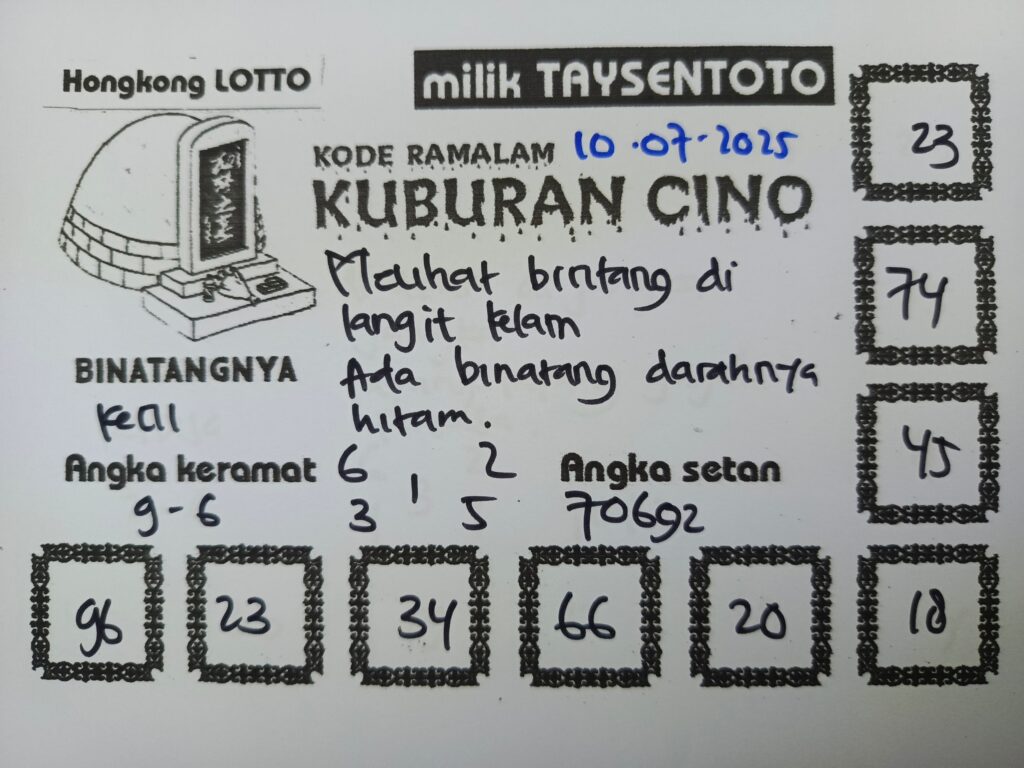 Hongkong LOTTO
milik TAYSENTOTO
KODE RAMALAM 10.07.2025
KUBURAN CINO
Melihat bintang di
langit kelam
Ada binatang darahnya
hitam.
BINATANGNYA
kecil
Angka keramat
9-6
6 2
1
3 5
Angka setan
70692
23
74
45
96 23 34 66 20 18